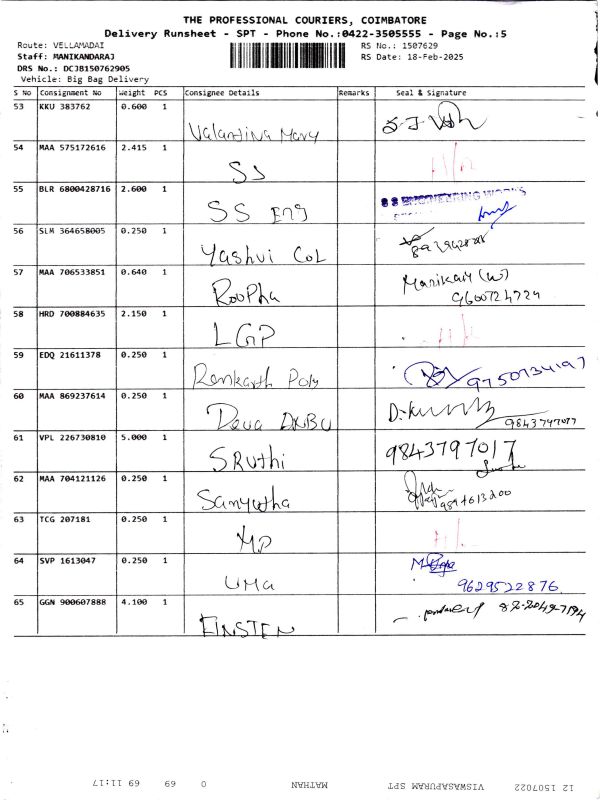 THE PROFESSIONAL COURIERS, COIMBATORE
Delivery Runsheet - SPT - Phone No.:0422-3505555 - Page No.:5
Route: VELLAMADAI
RS No.: 1507629
Staff: MANIKANDARAJ
RS Date: 18-Feb-2025
DRS No.: DCJB150762905
Vehicle: Big Bag Delivery
S No Consignment No Weight PCS Consignee Details Remarks Seal & Signature
53 KKU 383762 0.600 1
Valantina Mary
54 MAA 575172616 2.415 1
SS
55 BLR 6800428716 2.600 1
SS Eng S S ENGINEERING WORKS
56 SLM 364658005 0.250 1
Yashvi Col
57 MAA 706533851 0.640 1
Roopha Manikam (w)
9600724724
58 HRD 700884635 2.150 1
LGP
59 EDQ 21611378 0.250 1
Renkarth Poly 9750734197
60 MAA 869237614 0.250 1
Deva DNBU 9843797077
61 VPL 226730810 5.000 1
SRuthi 9843797017
62 MAA 704121126 0.250 1
Sanyutha 9894613200
63 TCG 207181 0.250 1
MP
64 SVP 1613047 0.250 1
UMa 9629522876
65 GGN 900607888 4.100 1
EINSTEN
12 1507022 VISWASAPURAM SPT MATHAN 0 69 69 11:17